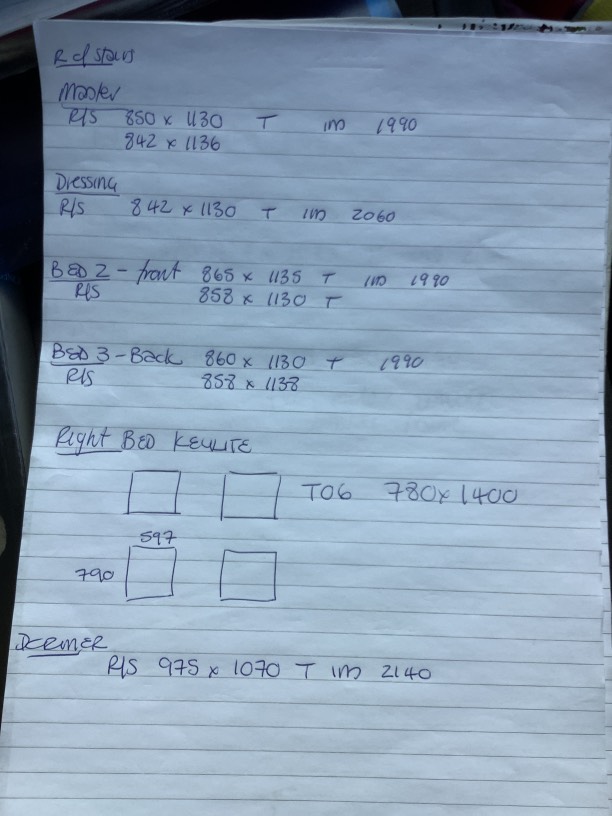 R of stairs
Master
R/S 850 x 1130 T im 1990
842 x 1136
Dressing
R/S 842 x 1130 T im 2060
BED 2 - front 865 x 1135 T im 1990
R/S 858 x 1130 T
BED 3 - Back 860 x 1130 T 1990
R/S 858 x 1138
Right BED KEYLITE
T06 780 x 1400
597
790
DORMER
R/S 975 x 1070 T im 2140